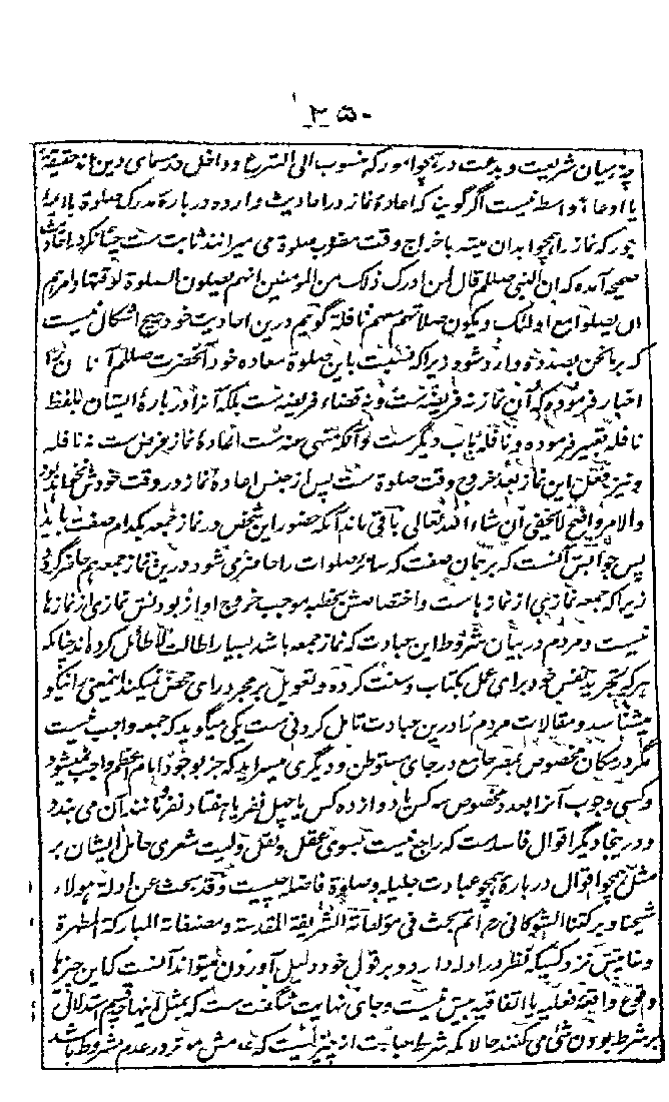 ۲۵۰
چه بیان شریعت و بدعت در همچو امور که منسوب الی الشرع و داخل در مسمای دین اند حقیقة
یا ادعاءً واسطه نیست اگر گویند که اعادهٔ نماز در احادیث وارده در بارهٔ مدرک صلوة با ایمهٔ
جور که نماز را همچو ابدان میته باخراج وقت مضروب صلوة می میرانند ثابت ست چنانکه در احادیث
صحیحه آمده که ان النبی صللم قال لمن ادرک ذلک من المومنین انهم یصلون الصلوة لوقتها و امرهم
ان یصلوا مع اولئک و یکون صلاتهم معهم نافلة گوئیم درین احادیث خود هیچ اشکال نیست
که بر مانحن بصدده وارد شود زیرا که نسبت باین صلوة معاده خود آنحضرت صللم
اخبار فرموده که آن نماز نه فریضه ست و نه قضاء فریضه ست بلکه آنرا در بارهٔ ایشان بلفظ
نافله تعبیر فرموده و نافله باب دیگر ست و آنکه منهی عنه ست اعادهٔ نماز بفرض ست نه نافله
و نیز فعل این نماز بعد خروج وقت صلوة ست پس از جنس اعادهٔ نماز در وقت خودش نخواهد بود
والامر واضح لا یخفی ان شاء الله تعالی باقی ماند آنکه حضور این شخص در نماز جمعه بکدام صفت باید
پس جوابش آنست که بر همان صفت که سائر صلوات را حاضر می شود در نماز جمعه هم حاضر گردد
زیرا که جمعه نمازی از نمازهاست و اختصاصش بخطبه موجب خروج او از بودنش نمازی از نمازها
نیست و مردم در بیان شروط این عبادت که نماز جمعه باشد بسیار اطالت لاطائل کرده اند چنانکه
هر که تجرید نفس خود برای عمل بکتاب و سنت کرده و تعویل بر مجرد رای محض نمیکند اینمعنی را نیکو
میشناسد و مقالات مردم را درین عبادت تامل کردنی ست یکی میگوید که جمعه واجب نیست
مگر در مکان مخصوص بمصر جامع در جای مستوطن و دیگری میسراید که جز بوجود امام اعظم واجب نمیشود
و کسی وجوب آنرا بعدد مخصوص سه کس یا دوازده کس یا چهل نفر یا هفتاد نفر و مانند آن می بندد
و در ینجا دیگر اقوال فاسده است که راجع نیست بسوی عقل و نقل ولیت شعری حامل ایشان بر
مثل همچو اقوال در بارهٔ همچو عبادت جلیله و صلوة فاضله چیست و قد بحث عن ادلة هولاء
شیخنا و برکتنا الشوکانی رح اتم بحث فی مولفاته الشریفة المقدسة و مصنفاته المبارکة المطهرة
و غایتش نزد کسیکه نظر در ادله دارد و بر قول خود دلیل آوردن میتواند آنست که این چیزها
وقوع واقعهٔ فعلیه یا اتفاقیه بیش نیست و جای نهایت شگفت ست که بمثل اینها استدلال
بر شرط بودن شئ می کنند حالانکه شرط عبارت از چیزیست که عدمش موثر در عدم مشروط باشد